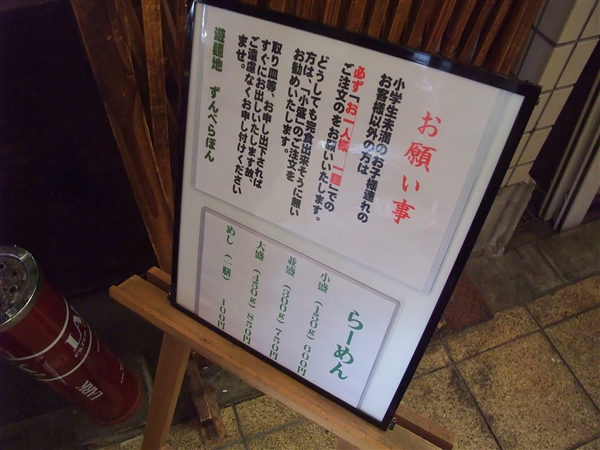 お願い事
小学生未満のお子様連れの
お客様以外の方は
必ず「お一人様 一麺」での
ご注文のをお願いいたします。
どうしても完食出来そうに無い
方は、「小盛」のご注文を
お勧めいたします。
取り皿等、お申し出下されば
すぐにお出しいたします故、
ご遠慮なくお申し付けください
ませ。
遊麺地 ずんべらぼん
らーめん
小盛 (150g) 600円
並盛 (300g) 750円
大盛 (450g) 850円
めし (一膳) 100円
LARK